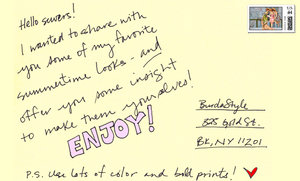 Hello sewers!
I wanted to share with
you some of my favorite
summertime looks - and
offer you some insight
to make them yourselves!
ENJOY!
BurdaStyle
BK, NY 11201
P.S. Use lots of color and bold prints!